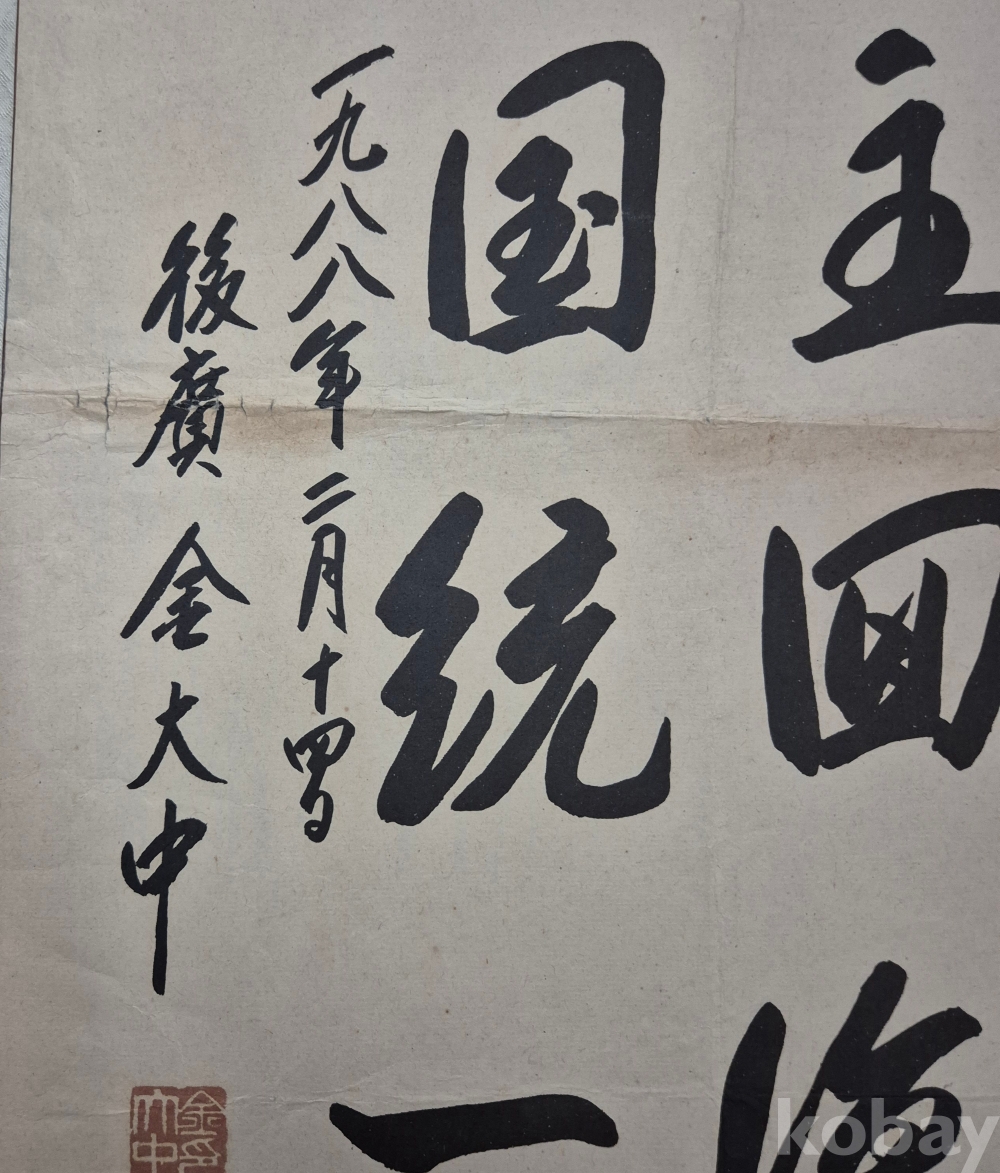 主囬
国統一
一九八八年二月十四日
後廣 金大中
金印
大中
kobay